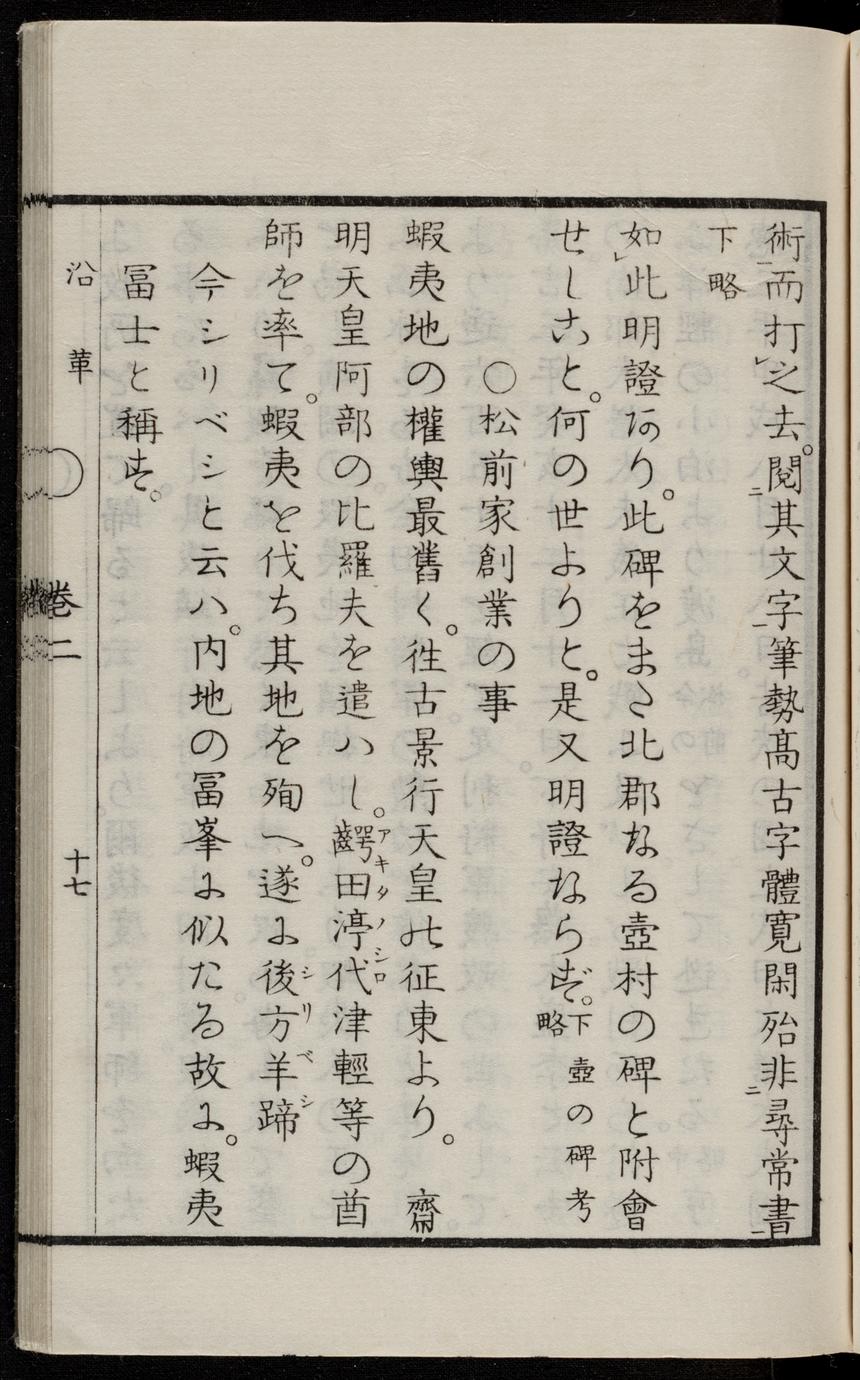 術一而打レ之去。閲二其文字一筆勢髙古字體寛閑殆非二尋常書一
下略
如レ此明證あり。此碑をまさ北郡なる壺村の碑と附會
せしこと。何の世よりと。是又明證ならず。下略 壺の碑考
○松前家創業の事
蝦夷地の權輿最舊く。徃古景行天皇の征東より。 齋
明天皇阿部の比羅夫を遣ハし。齶田渟代津輕等の酋
アキタノシロ
師を率て。蝦夷を伐ち其地を殉へ。遂に後方羊蹄
シリベシ
今シリベシと云ハ。内地の冨峯に似たる故に。蝦夷
冨士と稱す。
沿革 巻二 十七